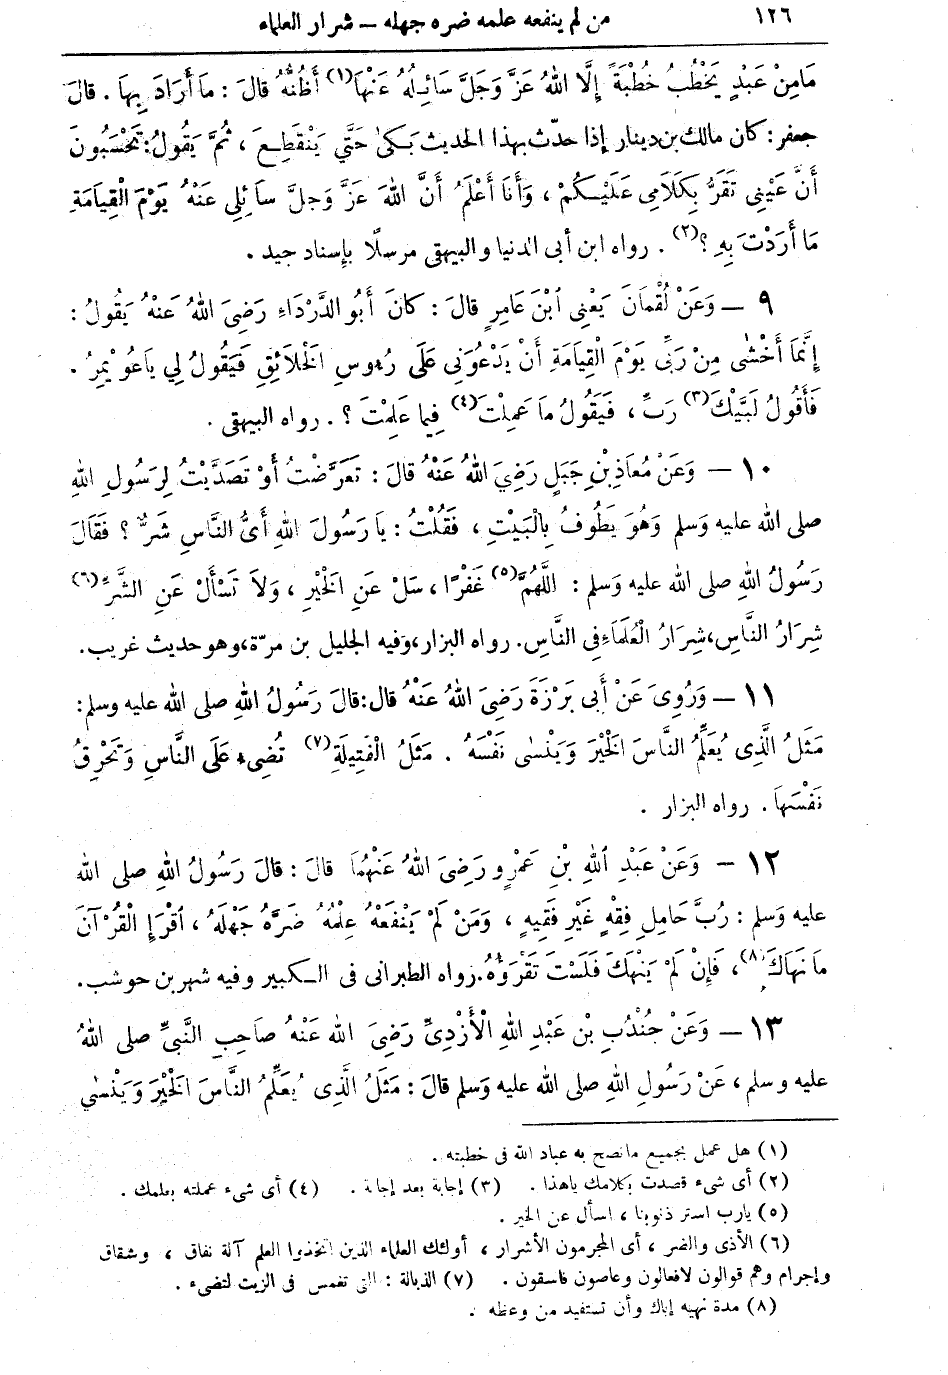 ١٢٦
من لم ينفعه علمه ضره جهله – شرار العلماء
مَا مِنْ عَبْدٍ يَخْطُبُ خُطْبَةً إِلَّا اللهُ عَزَّ وَجَلَّ سَائِلُهُ عَنْهَا(١) أَظُنُّهُ قَالَ : مَا أَرَادَ بِهَا . قَالَ
جعفر : كان مالك بن دينار إذا حدّث بهذا الحديث بَكىٰ حَتَّي يَنْقَطِعَ ، ثُمَّ يَقُولُ : تَحْسَبُونَ
أَنَّ عَيْنِي تَقَرُّ بِكَلَامِي عَلَيْكُمْ ، وَأَنَا أَعْلَمُ أَنَّ اللهَ عَزَّ وَجلَّ سَائِلِي عَنْهُ يَوْمَ الْقِيَامَةِ
مَا أَرَدْتَ بِهِ ؟(٢) . رواه ابن أبى الدنيا والبيهقى مرسلًا بإسناد جيد .
٩ – وَعَنْ لُقْمَانَ يَعْنِي ابْنَ عَامِرٍ قالَ : كَانَ أَبُو الدَّرْدَاءِ رَضِيَ اللهُ عَنْهُ يَقُولُ :
إِنَّمَا أَخْشٰى مِنْ رَبِّي يَوْمَ الْقِيَامَةِ أَنْ يَدْعُوَنِي عَلَى رُءُوسِ الْخَلَائِقِ فَيَقُولُ لِي يَاعُوَيْمِرُ .
فَأَقُولُ لَبَّيْكَ(٣) رَبِّ ، فَيَقُولُ مَا عَمِلْتَ(٤) فِيمَا عَلِمْتَ ؟ . رواه البيهقى .
١٠ – وَعَنْ مُعَاذِ بْنِ جَبَلٍ رَضِيَ اللهُ عَنْهُ قَالَ : تَعَرَّضْتُ أَوْ تَصَدَّيْتُ لِرَسُولِ اللهِ
صلى الله عليه وَسلم وَهُوَ يَطُوفُ بِالْبَيْتِ ، فَقُلْتُ : يَا رَسُولَ اللهِ أَىُّ النَّاسِ شَرٌّ ؟ فَقَالَ
رَسُولُ اللهِ صلى الله عليه وَسلم : اللَّهُمَّ(٥) غَفْرًا ، سَلْ عَنِ الْخَيْرِ ، وَلَا تَسْأَلْ عَنِ الشَّرِّ(٦)
شِرَارُ النَّاسِ ، شِرَارُ الْعُلَمَاءِ فِي النَّاسِ . رواه البزار ، وَفيه الجليل بن مرّة ، وهو حديث غريب .
١١ – وَرُوِيَ عَنْ أَبِي بَرْزَةَ رَضِيَ اللهُ عَنْهُ قال : قالَ رَسُولُ اللهِ صلى الله عليه وسلم :
مَثَلُ الَّذِى يُعَلِّمُ النَّاسَ الْخَيْرَ وَيَنْسٰى نَفْسَهُ . مَثَلُ الْفَتِيلَةِ(٧) تُضِىءُ عَلَى النَّاسِ وَتَحْرِقُ
نَفْسَهَا . رواه البزار .
١٢ – وَعَنْ عَبْدِ اللهِ بْنِ عَمْرٍو رَضِيَ اللهُ عَنْهُمَا قالَ : قالَ رَسُولُ اللهِ صلى الله
عليه وَسلم : رُبَّ حَامِلِ فِقْهٍ غَيْرِ فَقِيهٍ ، وَمَنْ لَمْ يَنْفَعْهُ عِلْمُهُ ضَرَّهُ جَهْلَهُ ، اقْرَإِ الْقُرْآنَ
مَا نَهَاكَ(٨) ، فَإِنْ لَمْ يَنْهَكَ فَلَسْتَ تَقْرَؤُهُ . رواه الطبرانى فى الكبير وفيه شهر بن حوشب .
١٣ – وَعَنْ جُنْدُبِ بْنِ عَبْدِ اللهِ الْأَزْدِىِّ رَضِيَ الله عَنْهُ صَاحِبِ النَّبِيِّ صلى اللهُ
عليه وسلم ، عَنْ رَسُولِ اللهِ صلى الله عليه وَسلم قالَ : مَثَلُ الَّذِى يُعَلِّمُ النَّاسَ الْخَيْرَ وَيَنْسٰي
(١) هل عمل بجميع ما نصح به عباد الله فى خطبته .
(٢) أى شىء قصدت بكلامك ياهذا . (٣) إجابة بعد إجابة . (٤) أى شىء عملته بعلمك .
(٥) يارب استر ذنوبنا ، اسأل عن الخير .
(٦) الأذى والضر ، أى المجرمون الأشرار ، أولئك العلماء الذين اتخذوا العلم آلة نفاق ، وشقاق
وإجرام وهم قوالون لافعالون وعاصون فاسقون . (٧) الذبالة : التى تغمس فى الزيت لتضىء .
(٨) مدة نهيه إياك وأن تستفيد من وعظه .